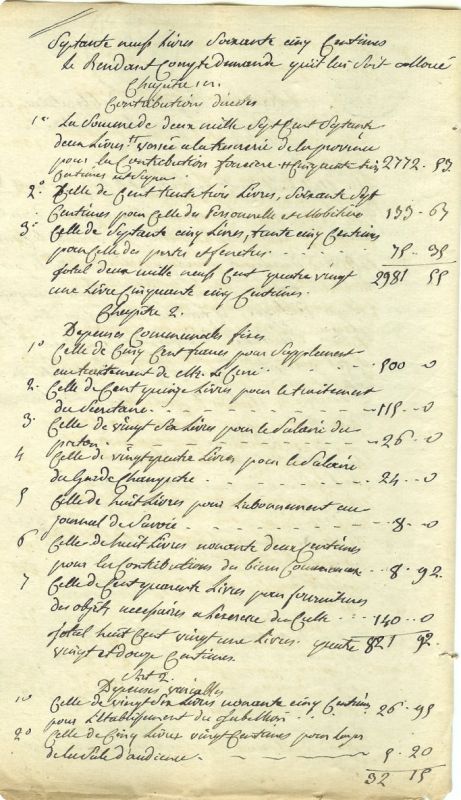 Septante neuf Livres Soixante cinq Centimes
Le Rendant Compte demande qu'il lui Soit alloué
Chapitre 1er.
Contributions directes
1° La Somme de deux mille Sept Cent Septante
deux Livres versée a la tresorerie de la province
pour la Contribution fonciere Cinquante trois 2772 . 53
Centimes
2° Celle de Cent trente trois Livres, Soixante Sept
Centimes pour Celle des Personnelle et Mobiliere 133 - 67
3° Celle de Septante cinq Livres, trente cinq Centimes
pour Celle des portes et fenetres 75 . 35
total deux mille neuf Cent quatre vingt 2981 55
une Livre Cinquante cinq Centimes.
Chapitre 2.
Depenses Communales fixes
1° Celle de Cinq Cent francs pour Supplement
au traitement de Mr. Le Curé 500 - 0
2. Celle de Cent quinze Livres pour le traitement
du Secretaire 115 - 0
3. Celle de vingt Six Livres pour le Salaire du
pieton 26 - 0
4 Celle de vingt quatre Livres pour le Salaire
du garde Champetre 24 - 0
5 Celle de huit Livres pour L'abonnement au
journal de Savoie 8 - 0
6 Celle de huit Livres nonante deux Centimes
pour la Contributions des biens Communaux 8 . 92
7 Celle de Cent quarante Livres pour fournitures
des objets necessaires a L'exercice du Culte 140 - 0
total huit Cent vingt une Livres 821 92.
vingt et douze Centimes
Art 2.
Depenses variables
1° Celle de vingt Six Livres nonante cinq Centimes
pour L'Etablissement du tabellion 26 - 95
2° Celle de Cinq Livres vingt Centimes pour Loyer
de la Sale d'audience 5 . 20
32 15